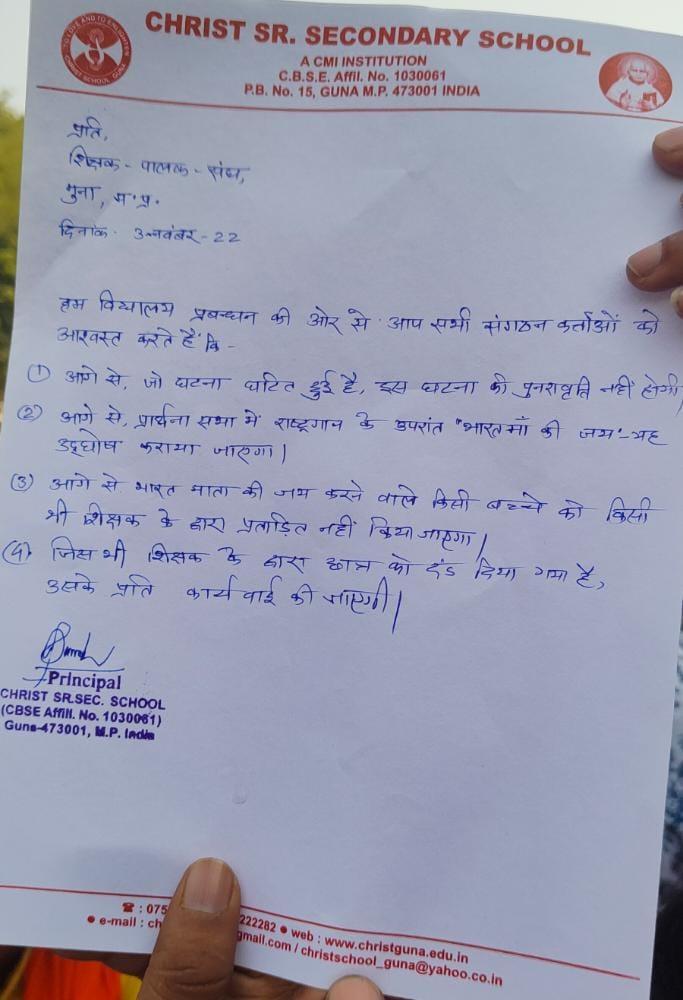 CHRIST SR. SECONDARY SCHOOL
A CMI INSTITUTION
C.B.S.E. Affil. No. 1030061
P.B. No. 15, GUNA M.P. 473001 INDIA
TO LOVE AND TO ENLIGHTEN
CHRIST SCHOOL GUNA
प्रति,
शिक्षक - पालक - संघ,
गुना, म.प्र.
दिनांक - 3 नवंबर - 22
हम विद्यालय प्रबन्धन की ओर से आप सभी संगठन कर्ताओं को
आश्वस्त करते हैं कि -
(1) आगे से, जो घटना घटित हुई है, इस घटना की पुनरावृत्ति नहीं होगी
(2) आगे से, प्रार्थना सभा में राष्ट्रगान के उपरांत "भारत माँ की जय" - यह
उद्घोष कराया जाएगा।
(3) आगे से भारत माता की जय करने वाले किसी बच्चे को किसी
भी शिक्षक के द्वारा प्रताड़ित नहीं किया जाएगा।
(4) जिस भी शिक्षक के द्वारा छात्र को दंड दिया गया है,
उसके प्रति कार्यवाई की जाएगी।
Principal
CHRIST SR.SEC. SCHOOL
(CBSE Affill. No. 1030061)
Guna-473001, M.P. India
☎ : 075 222282 ● web : www.christguna.edu.in
● e-mail : ch gmail.com / christschool_guna@yahoo.co.in